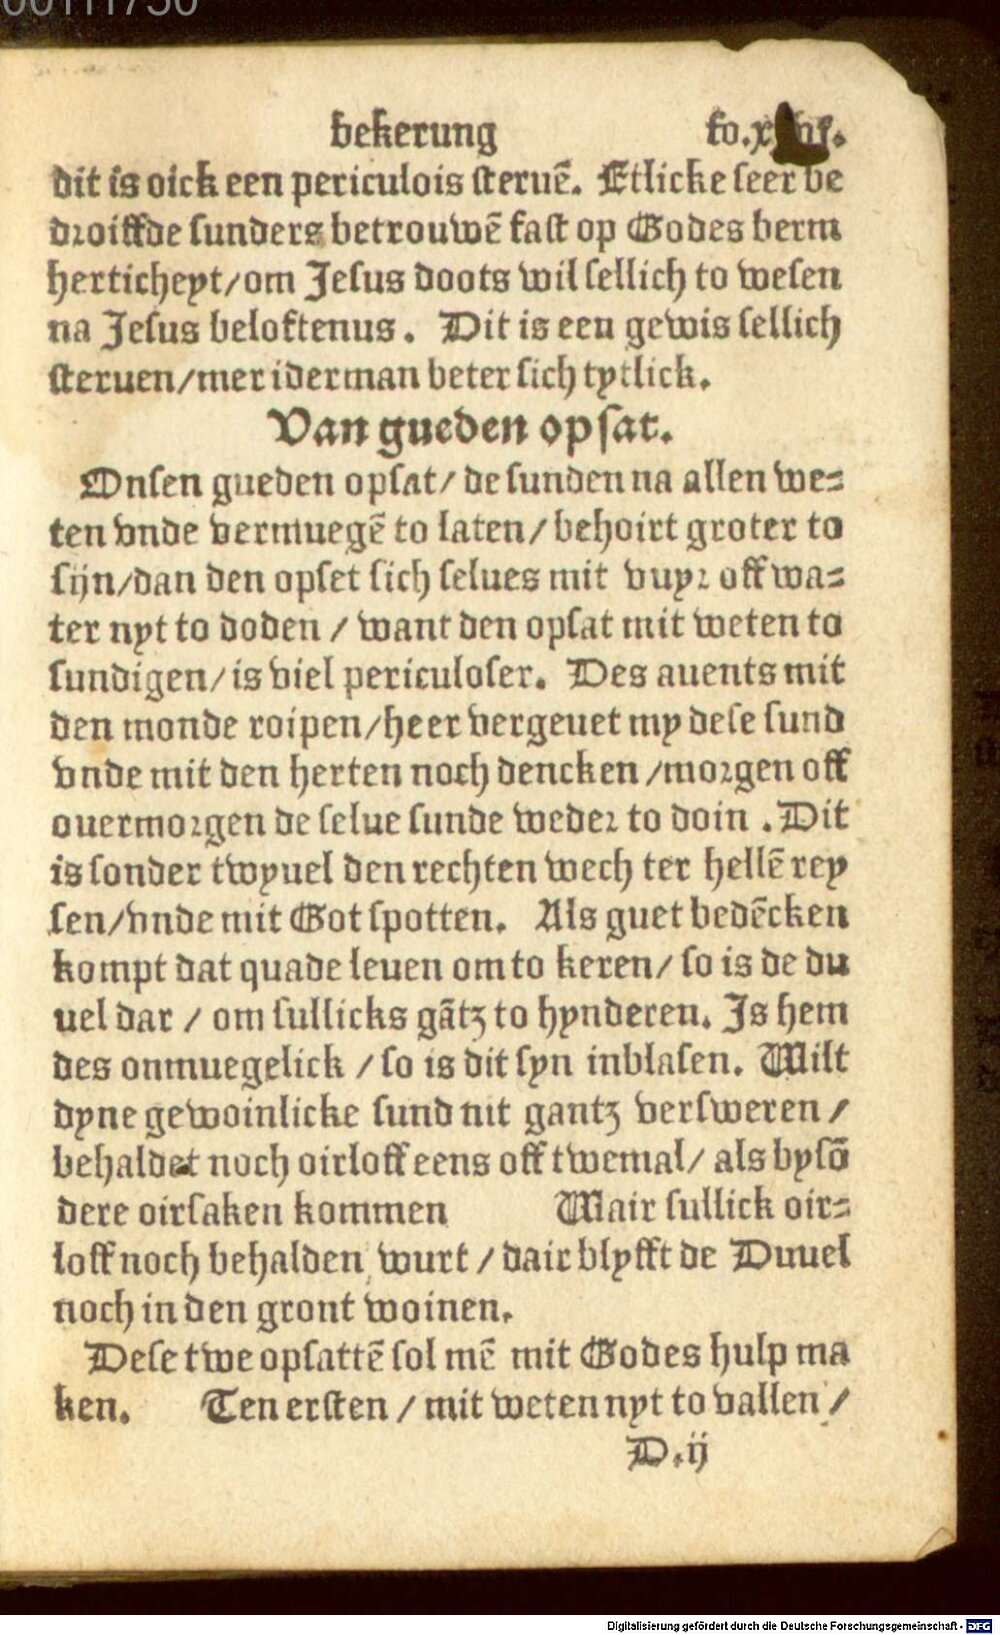 00111750
bekerung fo.
dit is oick een periculois steruē. Etlicke seer be
droiffde sunders betrouwē fast op Godes berm
herticheyt/om Jesus doots wil sellich to wesen
na Jesus beloftenus. Dit is een gewis sellich
steruen/mer iderman beter sich tytlick.
Van gueden opsat.
Onsen gueden opsat/ de sunden na allen we⸗
ten vnde vermuegē to laten/ behoirt groter to
sijn/dan den opset sich selues mit vuyr off wa⸗
ter nyt to doden / want den opsat mit weten to
sundigen/ is viel periculoser. Des auents mit
den monde roipen/heer vergeuet my dese sund
vnde mit den herten noch dencken /morgen off
ouermorgen de selue sunde weder to doin . Dit
is sonder twyuel den rechten wech ter hellē rey
sen/vnde mit Got spotten. Als guet bedēcken
kompt dat quade leuen om to keren/ so is de du
uel dar / om sullicks gātz to hynderen. Is hem
des onmuegelick / so is dit syn inblasen. Wilt
dyne gewoinlicke sund nit gantz versweren /
behaldet noch oirloff eens off twemal/ als bysō
dere oirsaken kommen Wair sullick oir⸗
loff noch behalden wurt / dair blyfft de Duuel
noch in den gront woinen.
Dese twe opsattē sol mē mit Godes hulp ma
ken. Ten ersten / mit weten nyt to vallen /
D.ij
Digitalisierung gefördert durch die Deutsche Forschungsgemeinschaft - DFG